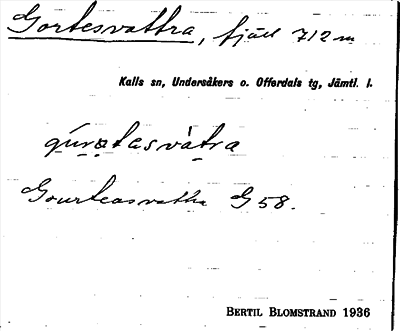 Gortesvattra, fjäll 712 m
Kalls sn, Undersåkers o. Offerdals tg, Jämtl. l.
gúrọtẹsvàtrạ
Gourteasvattra G 58.
BERTIL BLOMSTRAND 1936